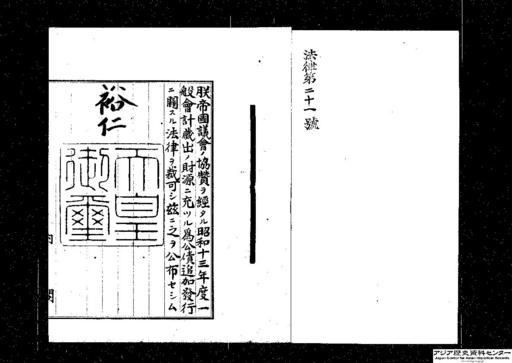 法律第二十一號
朕帝國議會ノ協贊ヲ經タル昭和十三年度一
般會計歲出ノ財源ニ充ツル爲公債追加發行
ニ關スル法律ヲ裁可シ玆ニ之ヲ公布セシム
裕仁
天皇
御璽
内閣
アジア歴史資料センター
Japan Center for Asian Historical Records